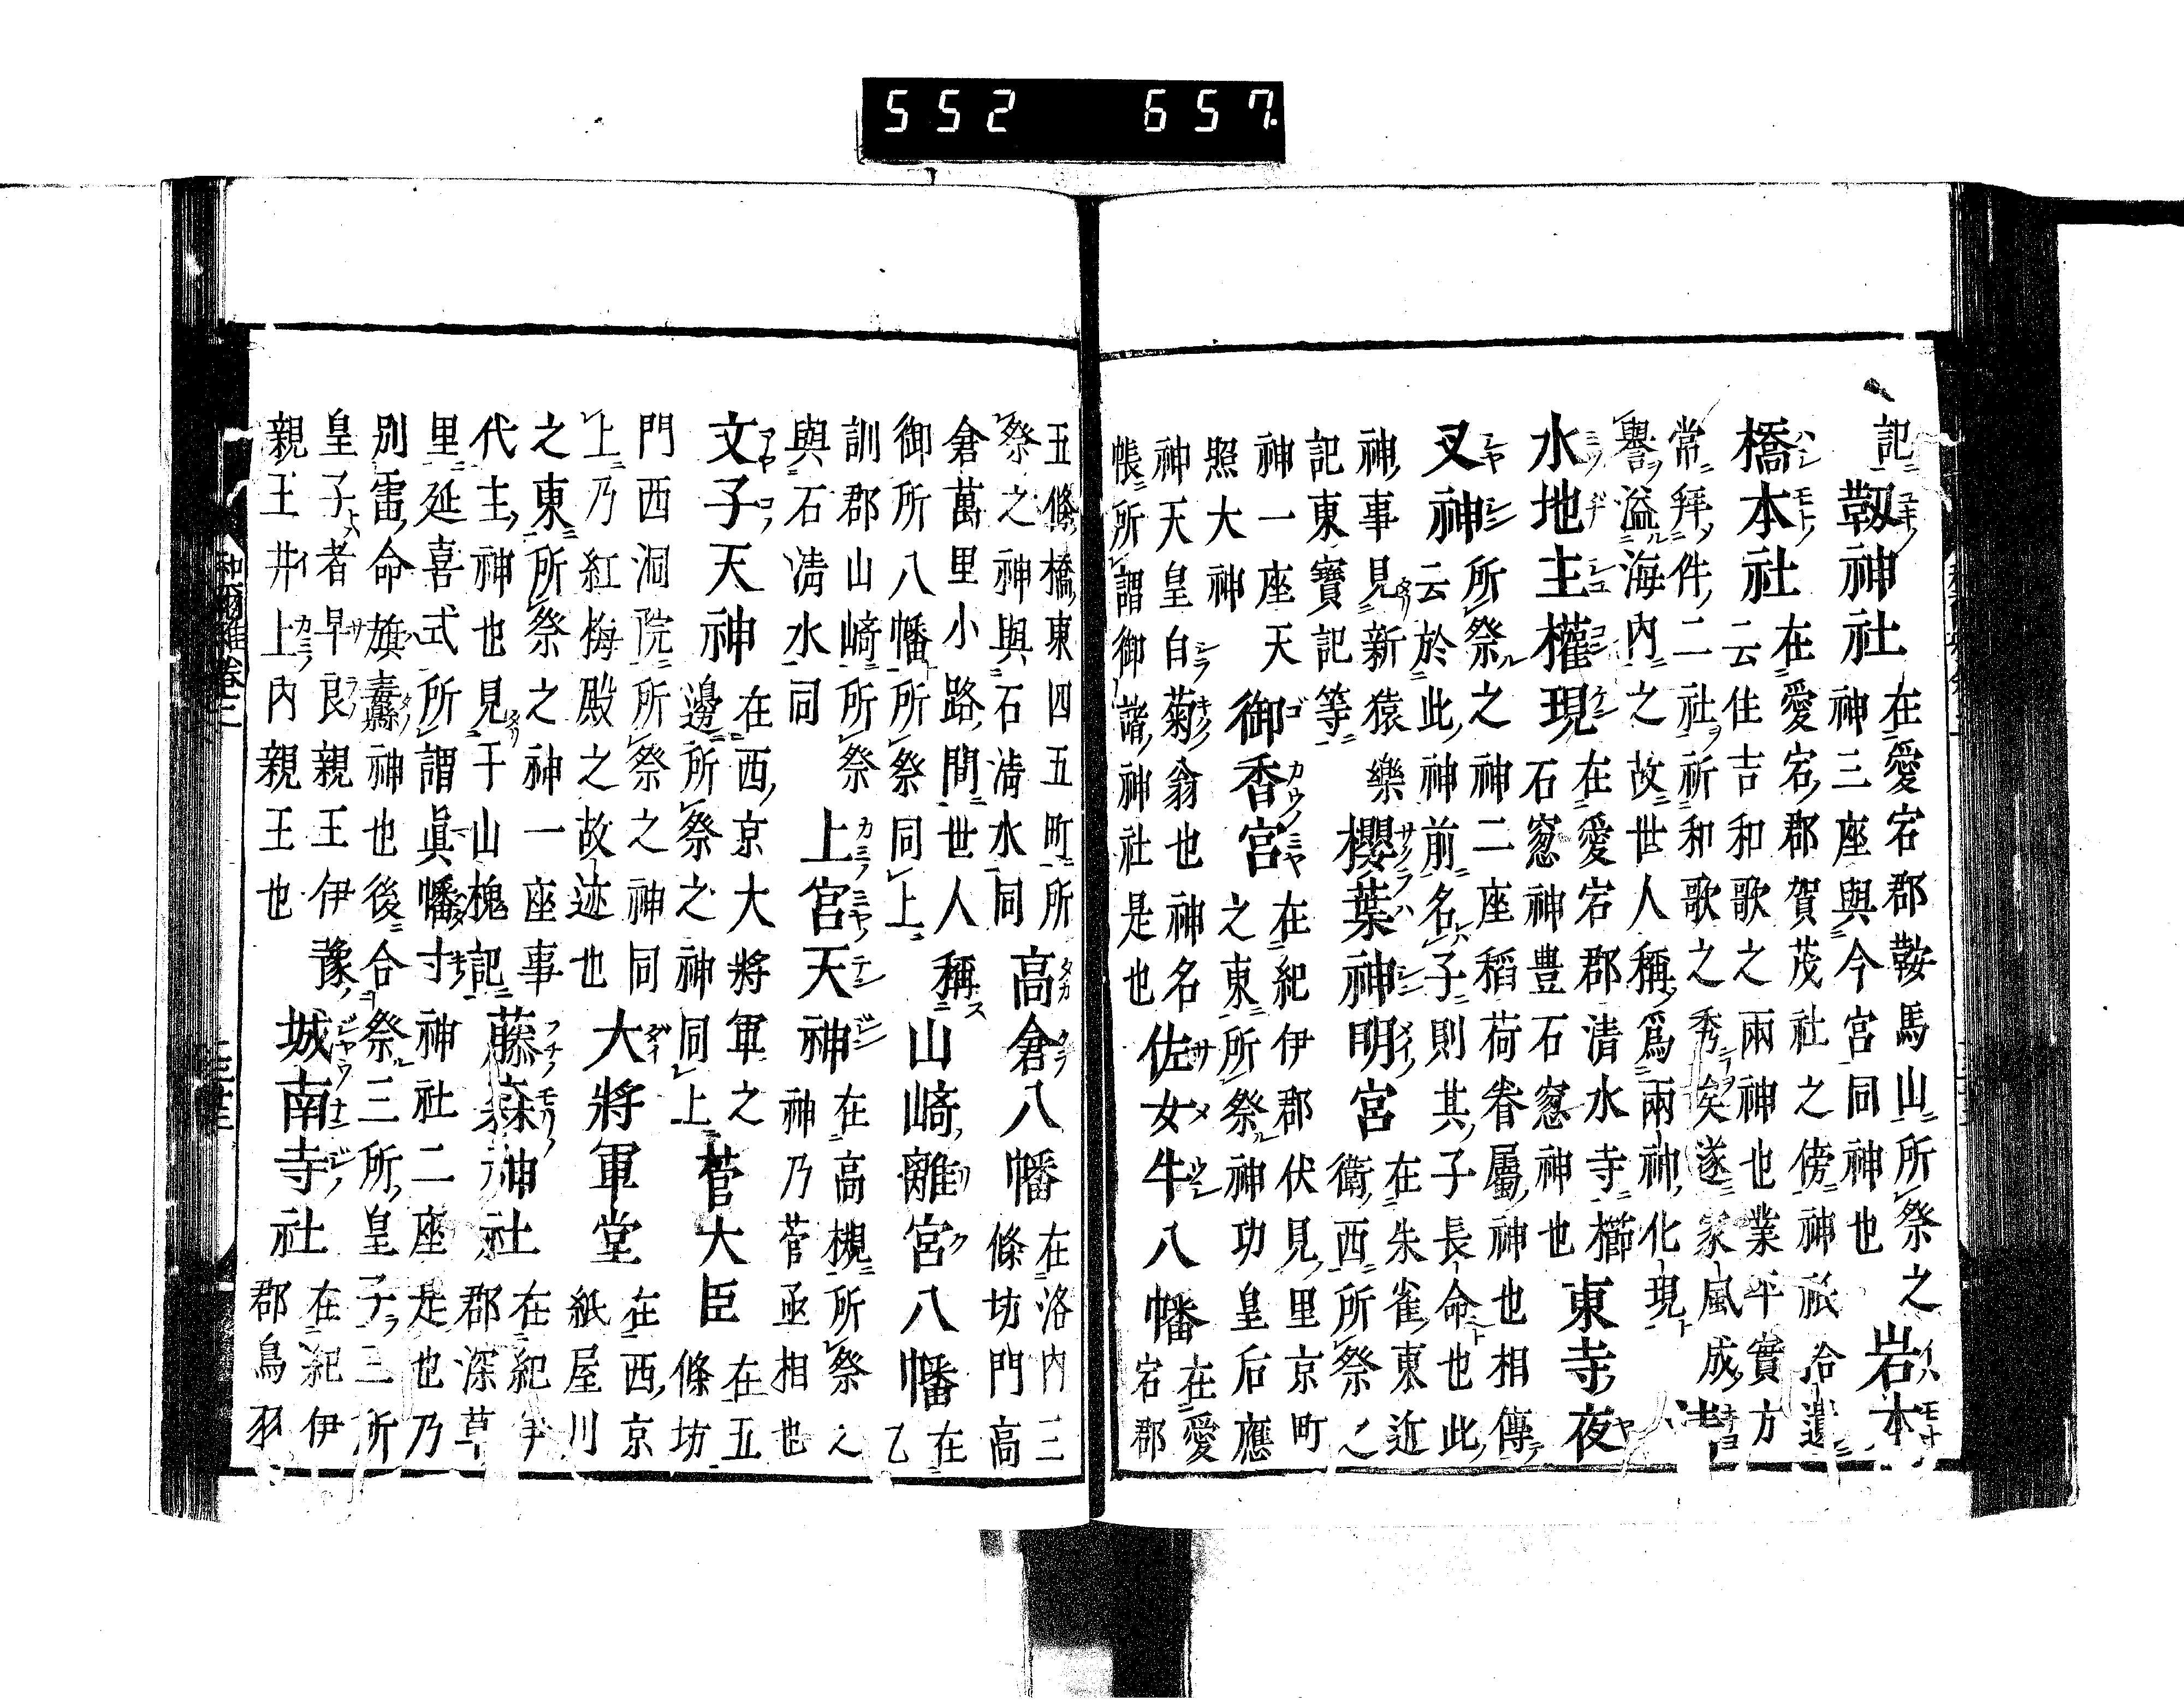 552 657
記靱神社
在愛宕郡鞍馬山所祭之
神三座與今宮同神也
岩本
橋本社
在愛宕郡賀茂社之傍神祇拾遺
云住吉和歌之兩神也業平實方
常拜件二社祈和歌之秀矣遂家風成
譽溢海內之故世人稱爲兩神化現
水地主權現
在愛宕郡清水寺櫛
石窓神豊石窓神也
東寺夜
叉神
所祭之神二座稻荷眷屬神也相傳
云於此神前名子則其子長命也此
神事見新猿樂
記東寶記等
櫻葉神明宮
在朱雀東近
衛西所祭之
神一座天
照大神
御香宮
在紀伊郡伏見里京町
之東所祭神功皇后應
神天皇白菊翁也神名
帳所謂御諸神社是也
佐女牛八幡
在愛
宕郡
五條橋東四五町所
祭之神與石清水同
高倉八幡
在洛内三
條坊門高
倉萬里小路間世人稱
御所八幡所祭同上
山﨑離宮八幡
在
乙
訓郡山﨑所祭
與石清水同
上宮天神
在高槻所祭之
神乃菅亟相也
文子天神
在西京大將軍之
邊所祭之神同上
菅大臣
在五
條坊
門西洞院所祭之神同
上乃紅梅殿之故迹也
大將軍堂
在西京
紙屋川
之東所祭之神一座事
代主神也見于山槐記
藤森神社
在紀伊
郡深草
里延喜式所謂眞幡寸神社二座是也乃
別雷命旗纛神也後合祭三所皇子三所
皇子者早良親王伊豫
親王井上内親王也
城南寺社
在紀伊
郡鳥羽